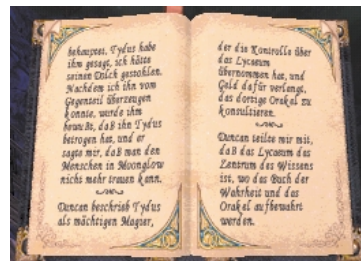 behauptet, Tydus habe
ihm gesagt, ich hätte
seinen Dolch gestohlen.
Nachdem ich ihn vom
Gegenteil überzeugen
konnte, wurde ihm
bewußt, daß ihn Tydus
betrogen hat, und er
sagte mir, daß man den
Menschen in Moonglow
nicht mehr trauen kann.
Duncan beschrieb Tydus
als mächtigen Magier,
der die Kontrolle über
das Lycaeum
übernommen hat, und
Geld dafür verlangt,
das dortige Orakel zu
konsultieren.
Duncan teilte mir mit,
daß das Lycaeum das
Zentrum des Wissens
ist, wo das Buch der
Wahrheit und das
Orakel aufbewahrt
werden.